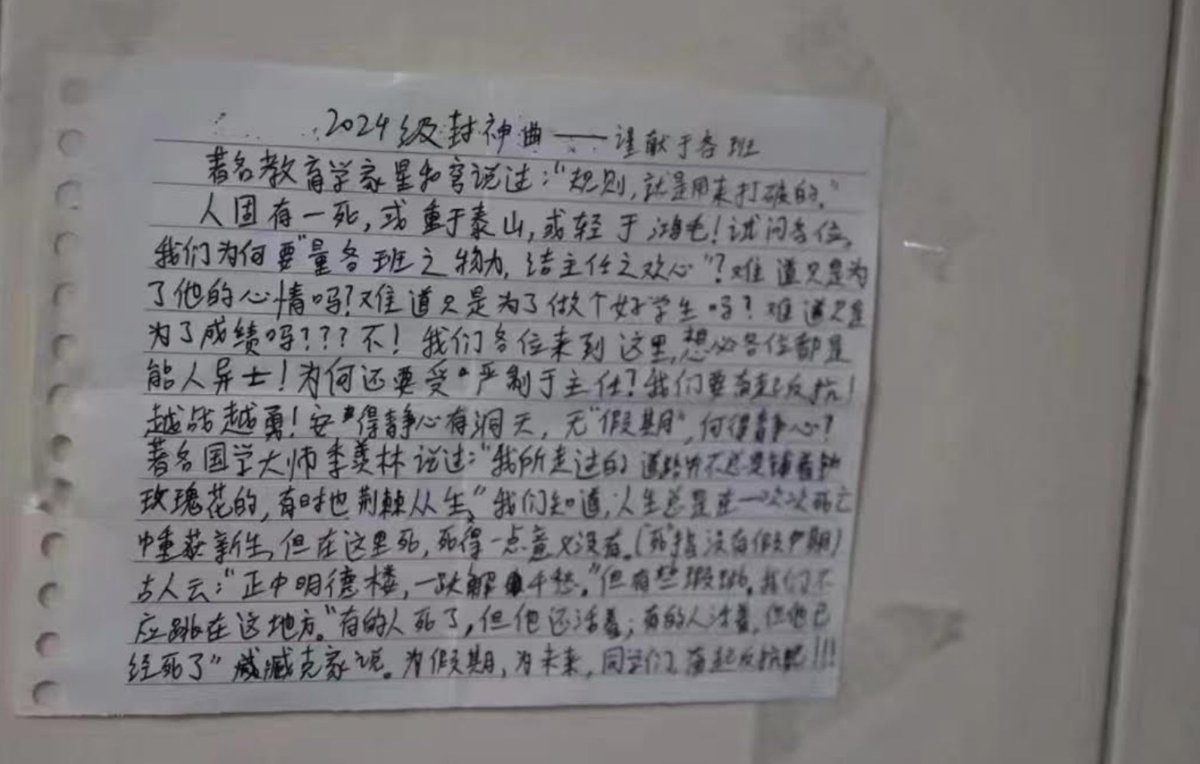 2024级封神曲——谨献于各班
著名教育学家星和宫说过："规则,就是用来打破的。"
人固有一死,或重于泰山,或轻于鸿毛!试问各位,
我们为何要"量各班之物力,结主任之欢心"?难道只是为
了他的心情吗?难道只是为了做个好学生吗?难道只是
为了成绩吗???不!我们各位来到这里,想必各位都是
能人异士!为何还要受严制于主任?我们要奋起反抗!
越战越勇!安得静心有洞天,无"假期",何得静心?
著名国学大师季羡林说过:"我所走过的道路并不总是铺着
玫瑰花的,有时也荆棘丛生。"我们知道,人生总是在一次次死亡
中重获新生,但在这里死,死得一点意义没有。(死指没有假期)
古人云:"正中明德楼,一跃解千愁。"但有些跳,我们不
应跳在这地方。"有的人死了,但他还活着;有的人活着,但他已
经死了"臧克家说。为假期,为未来,同学们,奋起反抗吧!!!